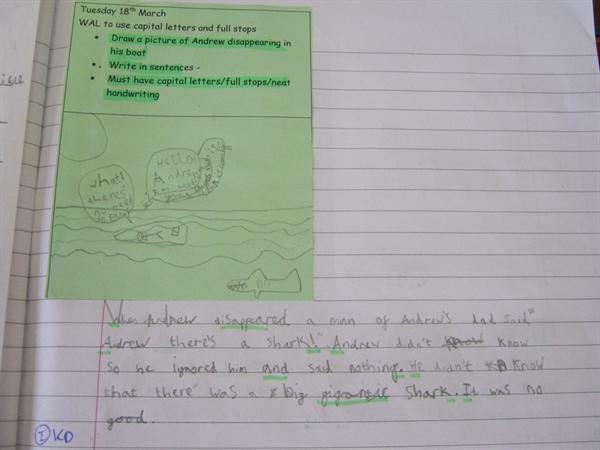 Tuesday 18th March
WAL to use capital letters and full stops
• Draw a picture of Andrew disappearing in
his boat
• Write in sentences -
• Must have capital letters/full stops/neat
handwriting
what!
theres
no need
to panic
Hello!
Andrew
When Andrew disappeared a man of Andrew's dad said"
Adrew there's a shark!" Andrew didn't know know
So he ignored him and said nothing. He didn't know
that there was a big gigantic shark. It was no
good.
I KD